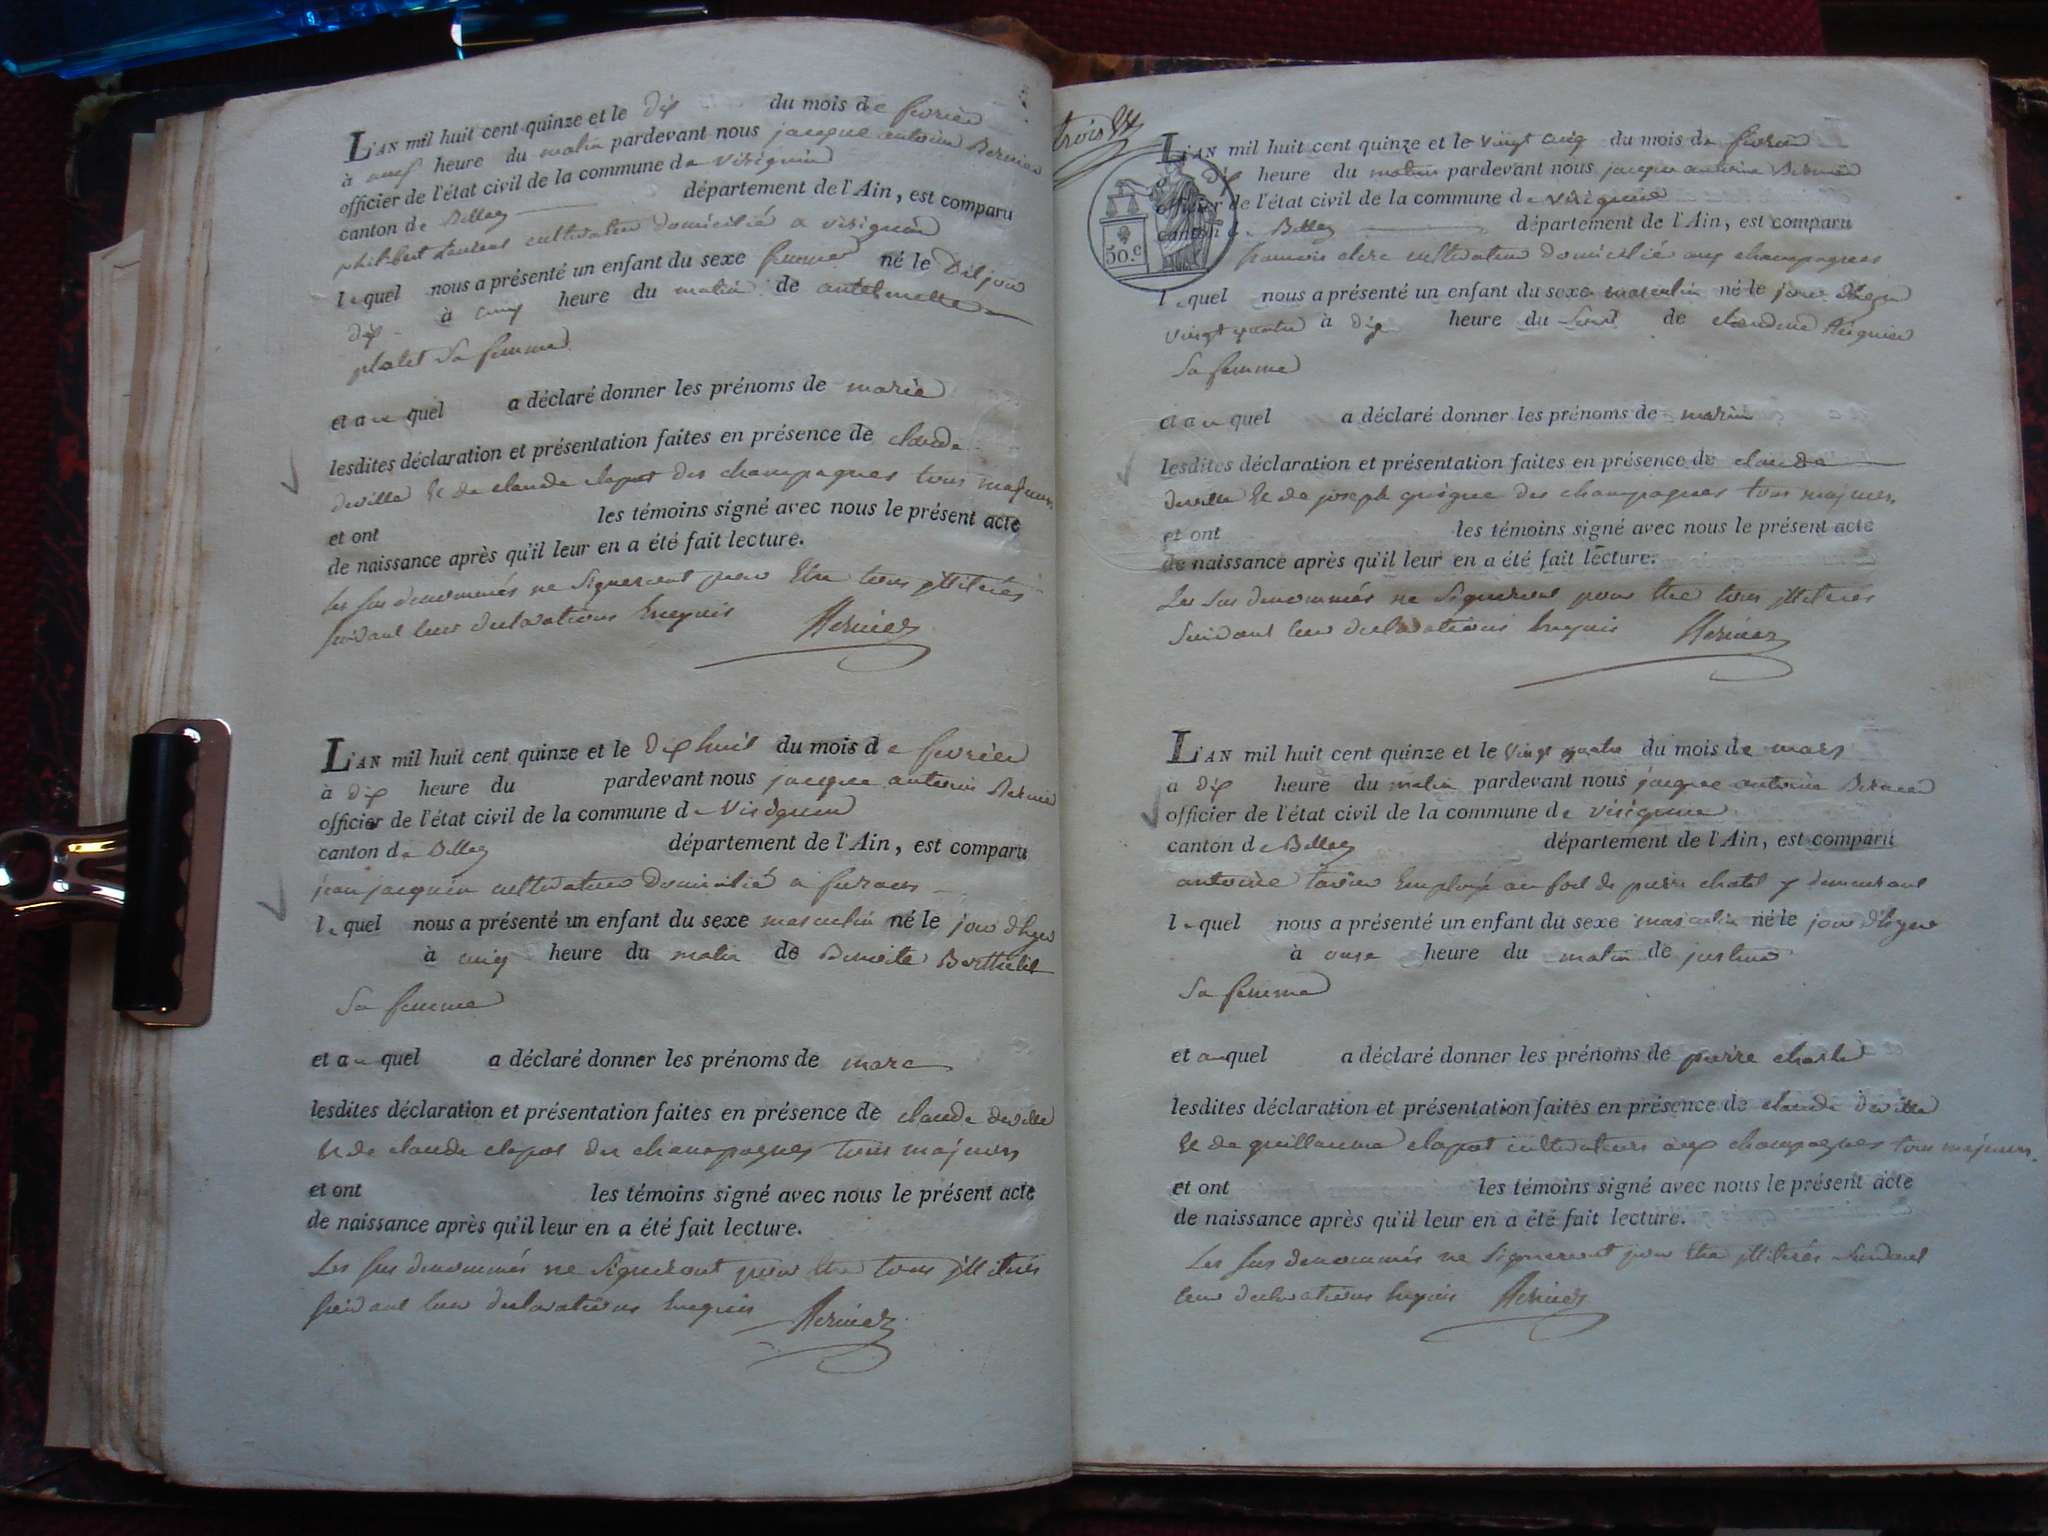 L'AN mil huit cent quinze et le dix du mois de fevrier
à heure du matin pardevant nous jacque antoine Bernier
officier de l'état civil de la commune de virignin
canton de Belley département de l'Ain, est comparu
philibert cultivateur domicilié a virignin
lequel nous a présenté un enfant du sexe femme né le dit jour
dix à cinq heure du matin de antelmette
platet sa femme
et au quel a déclaré donner les prénoms de marie
lesdites déclaration et présentation faites en présence de claude
deville & de claude clapot des champagnes tous majeurs
et ont les témoins signé avec nous le présent acte
de naissance après qu'il leur en a été fait lecture.
les sus denommés ne signeront pour etre tous illiterés
suivant leur declarations Bernier
L'AN mil huit cent quinze et le dix huit du mois de fevrier
à dix heure du pardevant nous jacque antoine Bernier
officier de l'état civil de la commune de Virignin
canton de Belley département de l'Ain, est comparu
jean jacquin cultivateur domicilié a furans
lequel nous a présenté un enfant du sexe masculin né le jour d'hyer
à cinq heure du matin de Benoite Berthelet
sa femme
et au quel a déclaré donner les prénoms de marc
lesdites déclaration et présentation faites en présence de claude deville
& de claude clapot des champagnes tous majeurs
et ont les témoins signé avec nous le présent acte
de naissance après qu'il leur en a été fait lecture.
Les sus denommés ne signeront pour etre tous illiterés
suivant leur declarations Bernier
trois
L'AN mil huit cent quinze et le vingt cinq du mois de fevrier
dix heure du matin pardevant nous jacque antoine Bernier
officier de l'état civil de la commune de virignin
canton de Belley département de l'Ain, est comparu
50.c
francois clerc cultivateur domicilié aux champagnes
lequel nous a présenté un enfant du sexe masculin né le jour d'hyer
vingt quatre à dix heure du soir de claudine
sa femme
et au quel a déclaré donner les prénoms de marin
lesdites déclaration et présentation faites en présence de claude
deville & de joseph guigue des champagnes tous majeurs
et ont les témoins signé avec nous le présent acte
de naissance après qu'il leur en a été fait lecture.
Les sus denommés ne signeront pour etre tous illiterés
suivant leur declarations Bernier
L'AN mil huit cent quinze et le vingt quatre du mois de mars
à dix heure du matin pardevant nous jacque antoine Bernier
officier de l'état civil de la commune de virignin
canton de Belley département de l'Ain, est comparu
antoine employé au fort de pierre chatel y demeurant
lequel nous a présenté un enfant du sexe masculin né le jour d'hyer
à onse heure du matin de justine
sa femme
et au quel a déclaré donner les prénoms de pierre charle
lesdites déclaration et présentation faites en présence de claude deville
& de guillaume clapot cultivateurs aux champagnes tous majeurs
et ont les témoins signé avec nous le présent acte
de naissance après qu'il leur en a été fait lecture.
Les sus denommés ne signeront pour etre illiterés suivant
leur declarations Bernier